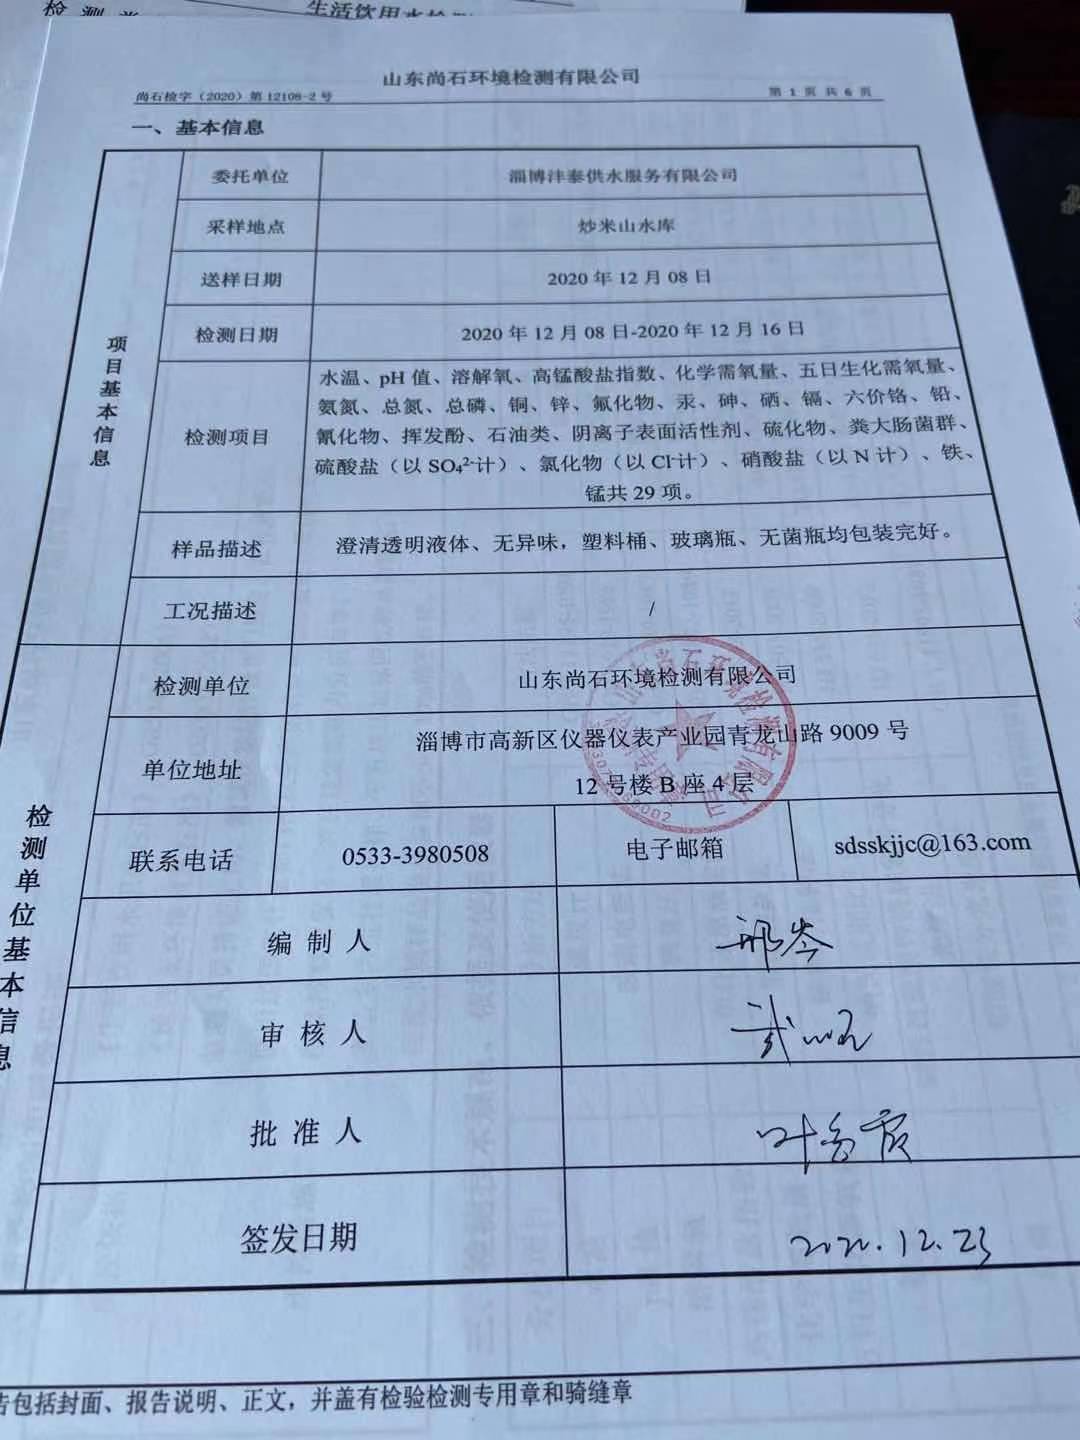 生活饮用水检测
山东尚石环境检测有限公司
尚石检字（2020）第 12108-2 号
第 1 页 共 6 页
一、基本信息
项目基本信息
委托单位
淄博沣泰供水服务有限公司
采样地点
炒米山水库
送样日期
2020 年 12 月 08 日
检测日期
2020 年 12 月 08 日-2020 年 12 月 16 日
检测项目
水温、pH 值、溶解氧、高锰酸盐指数、化学需氧量、五日生化需氧量、
氨氮、总氮、总磷、铜、锌、氟化物、汞、砷、硒、镉、六价铬、铅、
氰化物、挥发酚、石油类、阴离子表面活性剂、硫化物、粪大肠菌群、
硫酸盐（以 SO₄²⁻计）、氯化物（以 Cl⁻计）、硝酸盐（以 N 计）、铁、
锰共 29 项。
样品描述
澄清透明液体、无异味，塑料桶、玻璃瓶、无菌瓶均包装完好。
工况描述
/
检测单位基本信息
检测单位
山东尚石环境检测有限公司
单位地址
淄博市高新区仪器仪表产业园青龙山路 9009 号
12 号楼 B 座 4 层
联系电话
0533-3980508
电子邮箱
sdsskjjc@163.com
编 制 人
邢岑
审 核 人
批 准 人
签发日期
2020.12.23
告包括封面、报告说明、正文，并盖有检验检测专用章和骑缝章